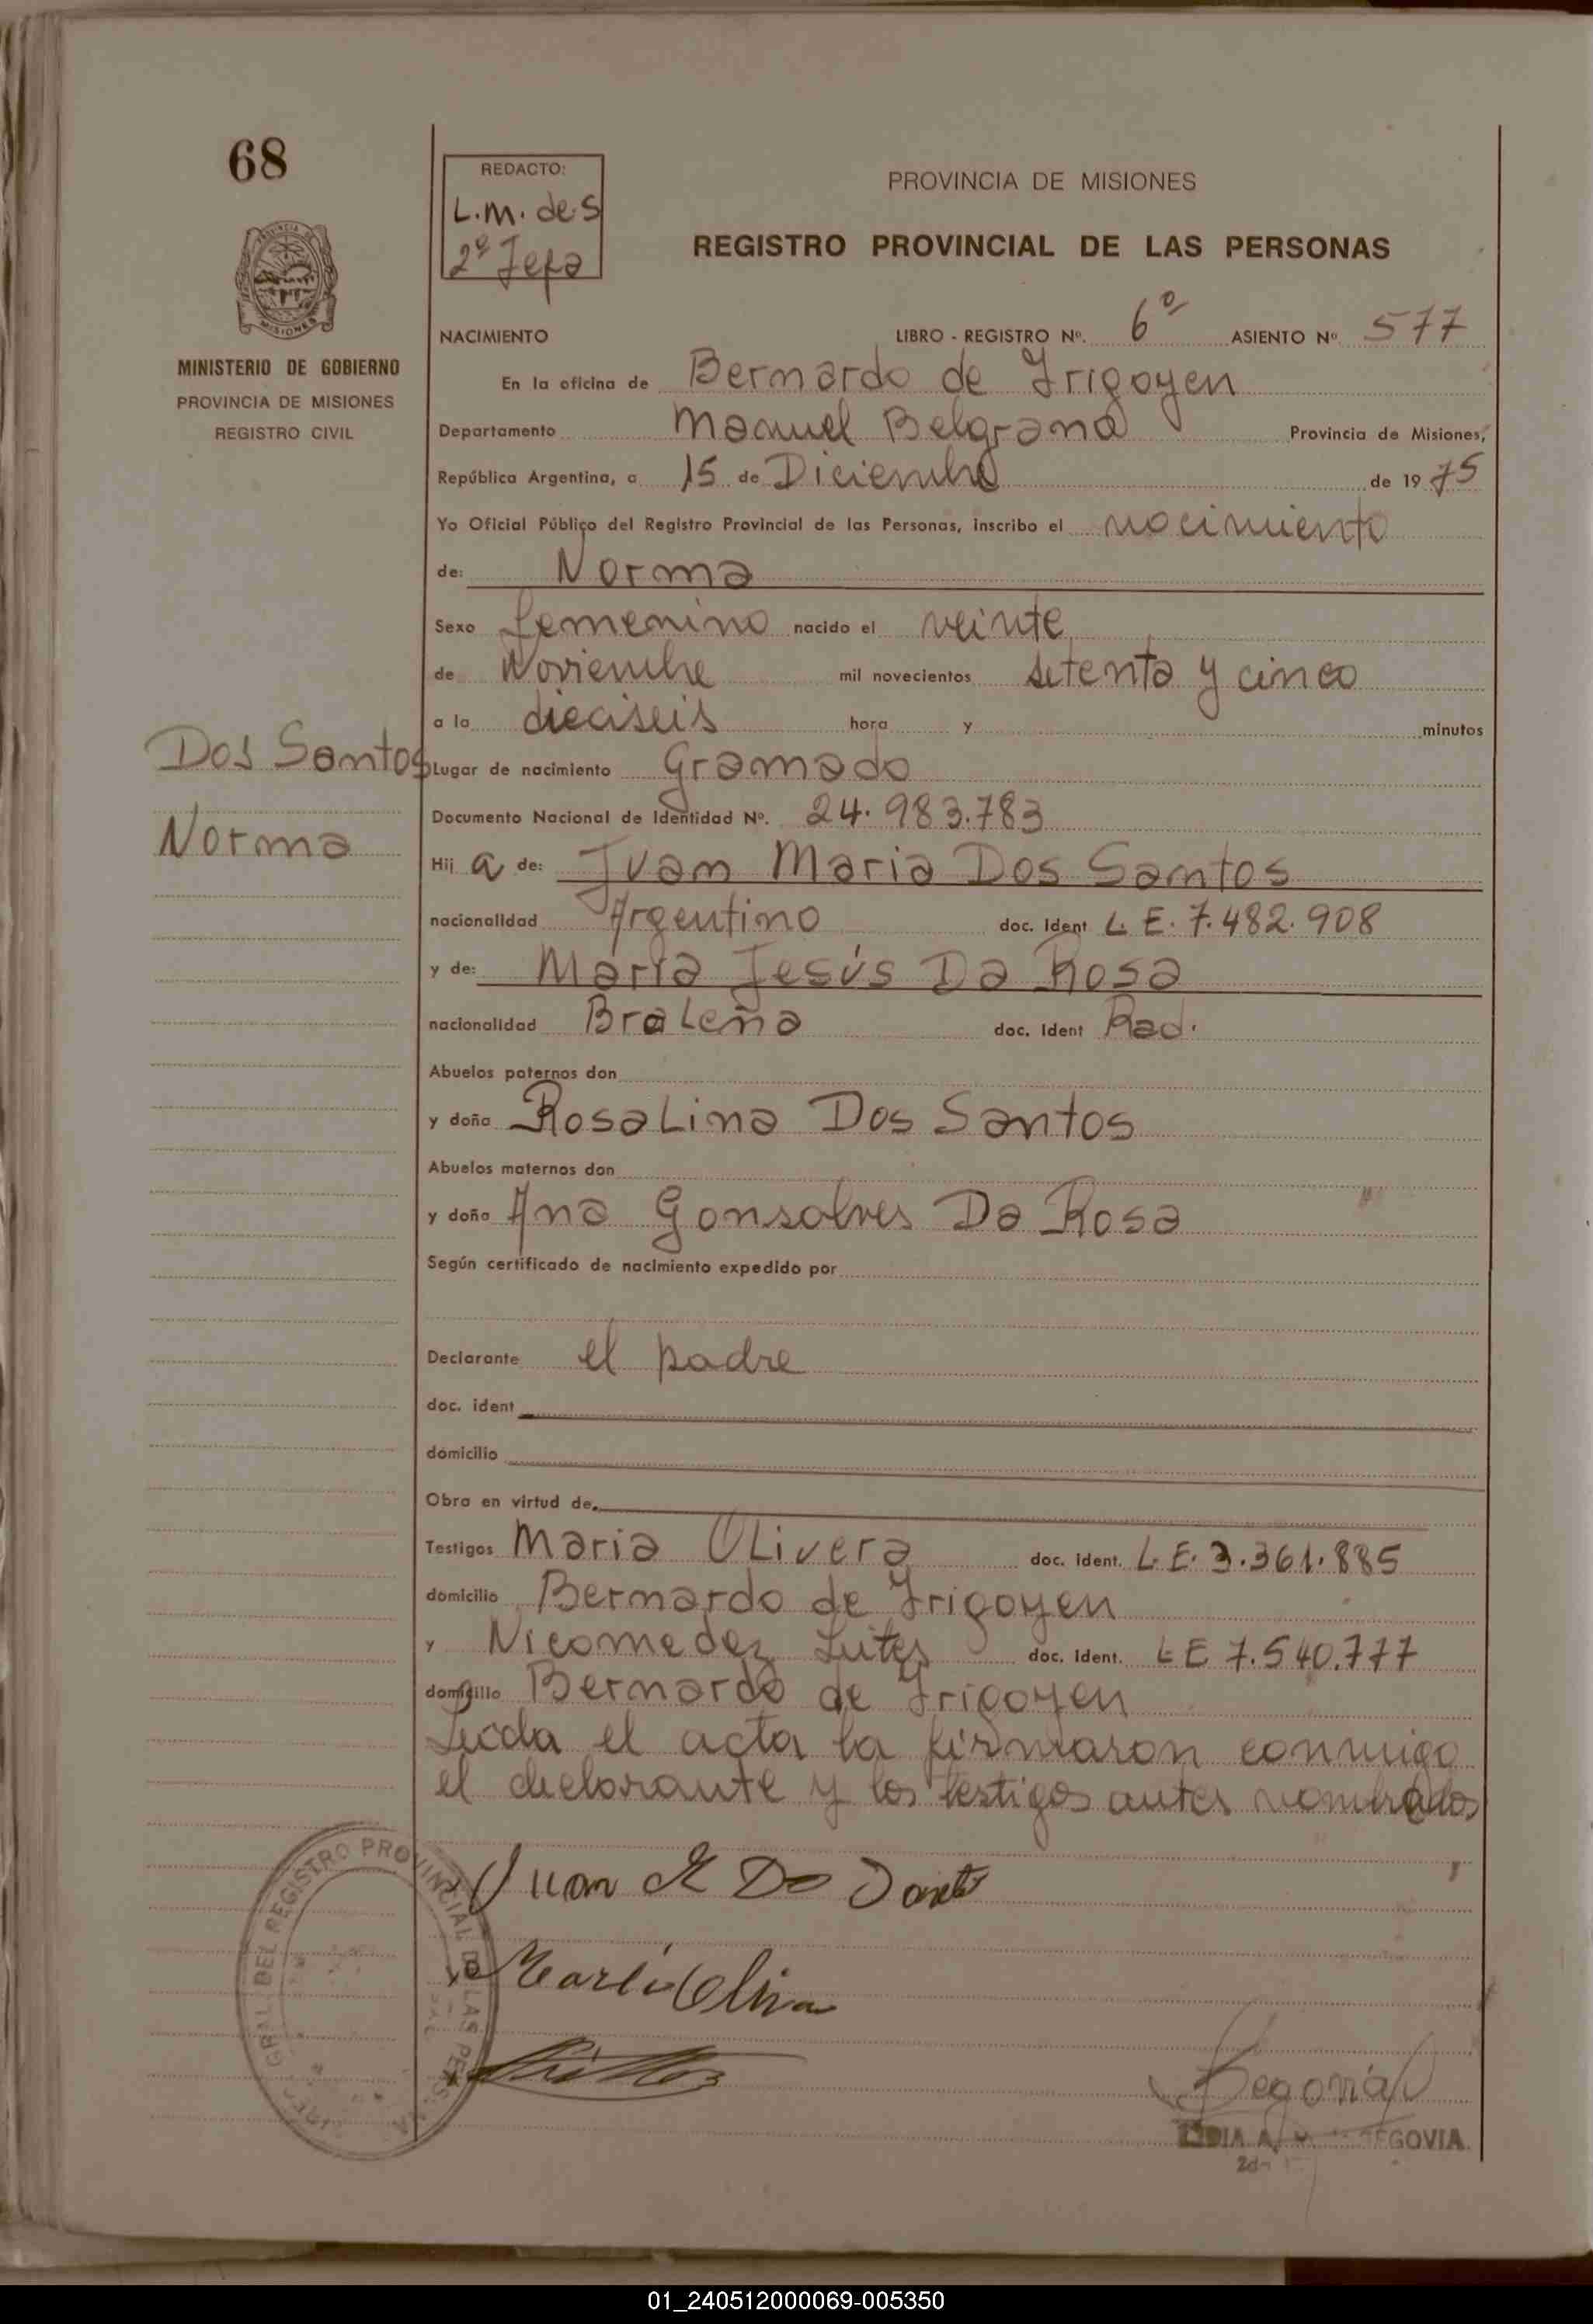 68
REDACTO:
L.M. de S
2º Jefa
PROVINCIA DE MISIONES
REGISTRO PROVINCIAL DE LAS PERSONAS
MISIONES
MINISTERIO DE GOBIERNO
PROVINCIA DE MISIONES
REGISTRO CIVIL
NACIMIENTO LIBRO - REGISTRO Nº. 6º ASIENTO Nº 577
En la oficina de Bernardo de Irigoyen
Departamento Manuel Belgrano Provincia de Misiones,
República Argentina, a 15 de Diciembre de 1975
Yo Oficial Público del Registro Provincial de las Personas, inscribo el nacimiento
de: Norma
Sexo femenino nacido el veinte
de Noviembre mil novecientos setenta y cinco
a la dieciseis hora y minutos
Dos Santos
Norma
Lugar de nacimiento Gramado
Documento Nacional de Identidad Nº. 24.983.783
Hij a de: Juan Maria Dos Santos
nacionalidad Argentino doc. Ident L.E. 7.482.908
y de: María Jesús Da Rosa
nacionalidad Braleña doc. Ident Rad.
Abuelos paternos don
y doña Rosalina Dos Santos
Abuelos maternos don
y doña Ana Gonsalves Da Rosa
Según certificado de nacimiento expedido por
Declarante el padre
doc. ident
domicilio
Obra en virtud de.
Testigos Maria Olivera doc. ident. L.E. 3.361.885
domicilio Bernardo de Irigoyen
y Nicomedez Leites doc. Ident. LE 7.540.777
domicilio Bernardo de Irigoyen
Leida el acta la firmaron conmigo
el declarante y los testigos antes nombrados
Juan M Do Sant
Maria Oliva
GRAL. DEL REGISTRO PROVINCIAL DE LAS PERS
Segovia
LIDIA A. SEGOVIA
01_240512000069-005350